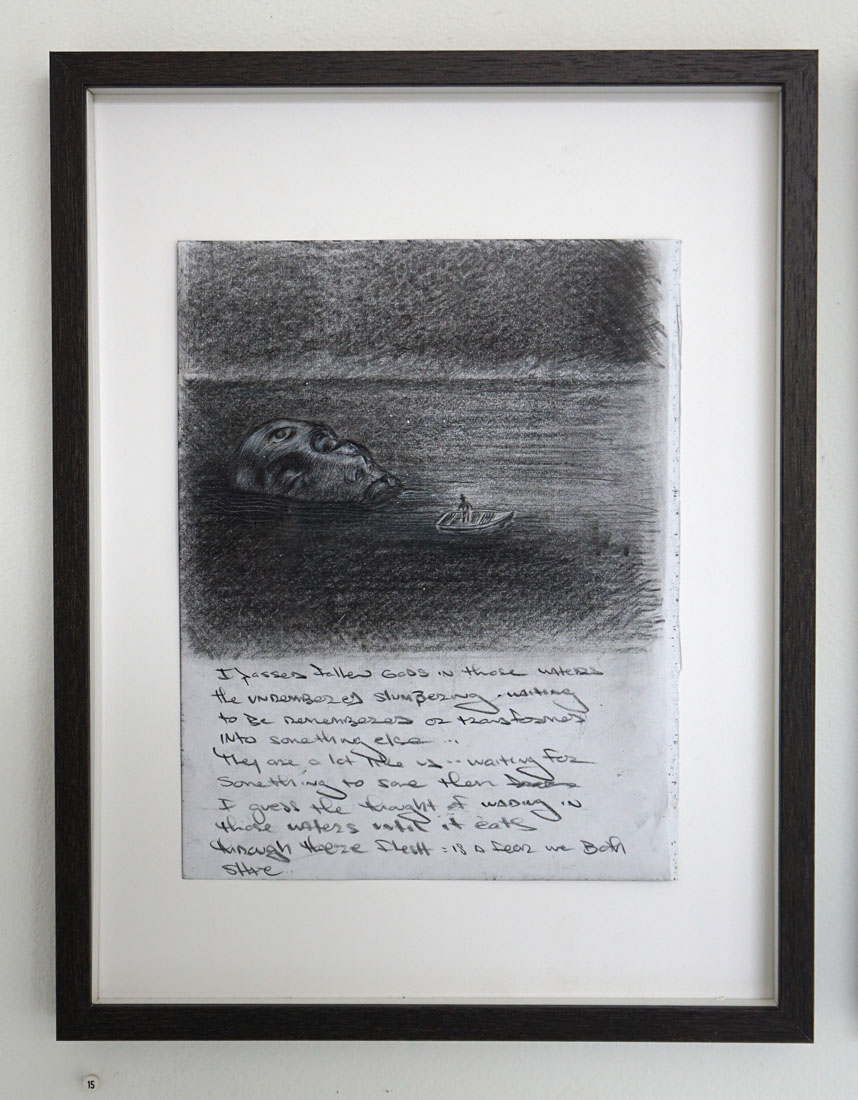 I passed fallen GODS in those waters
the slumbering . waiting
to Be Remembered or transformed
INto something else ...
They are a lot like us .. waiting for
Something to save them
I guess the thought of wading in
those waters until it eats
through there flesh : is a fear we Both
SHare
15